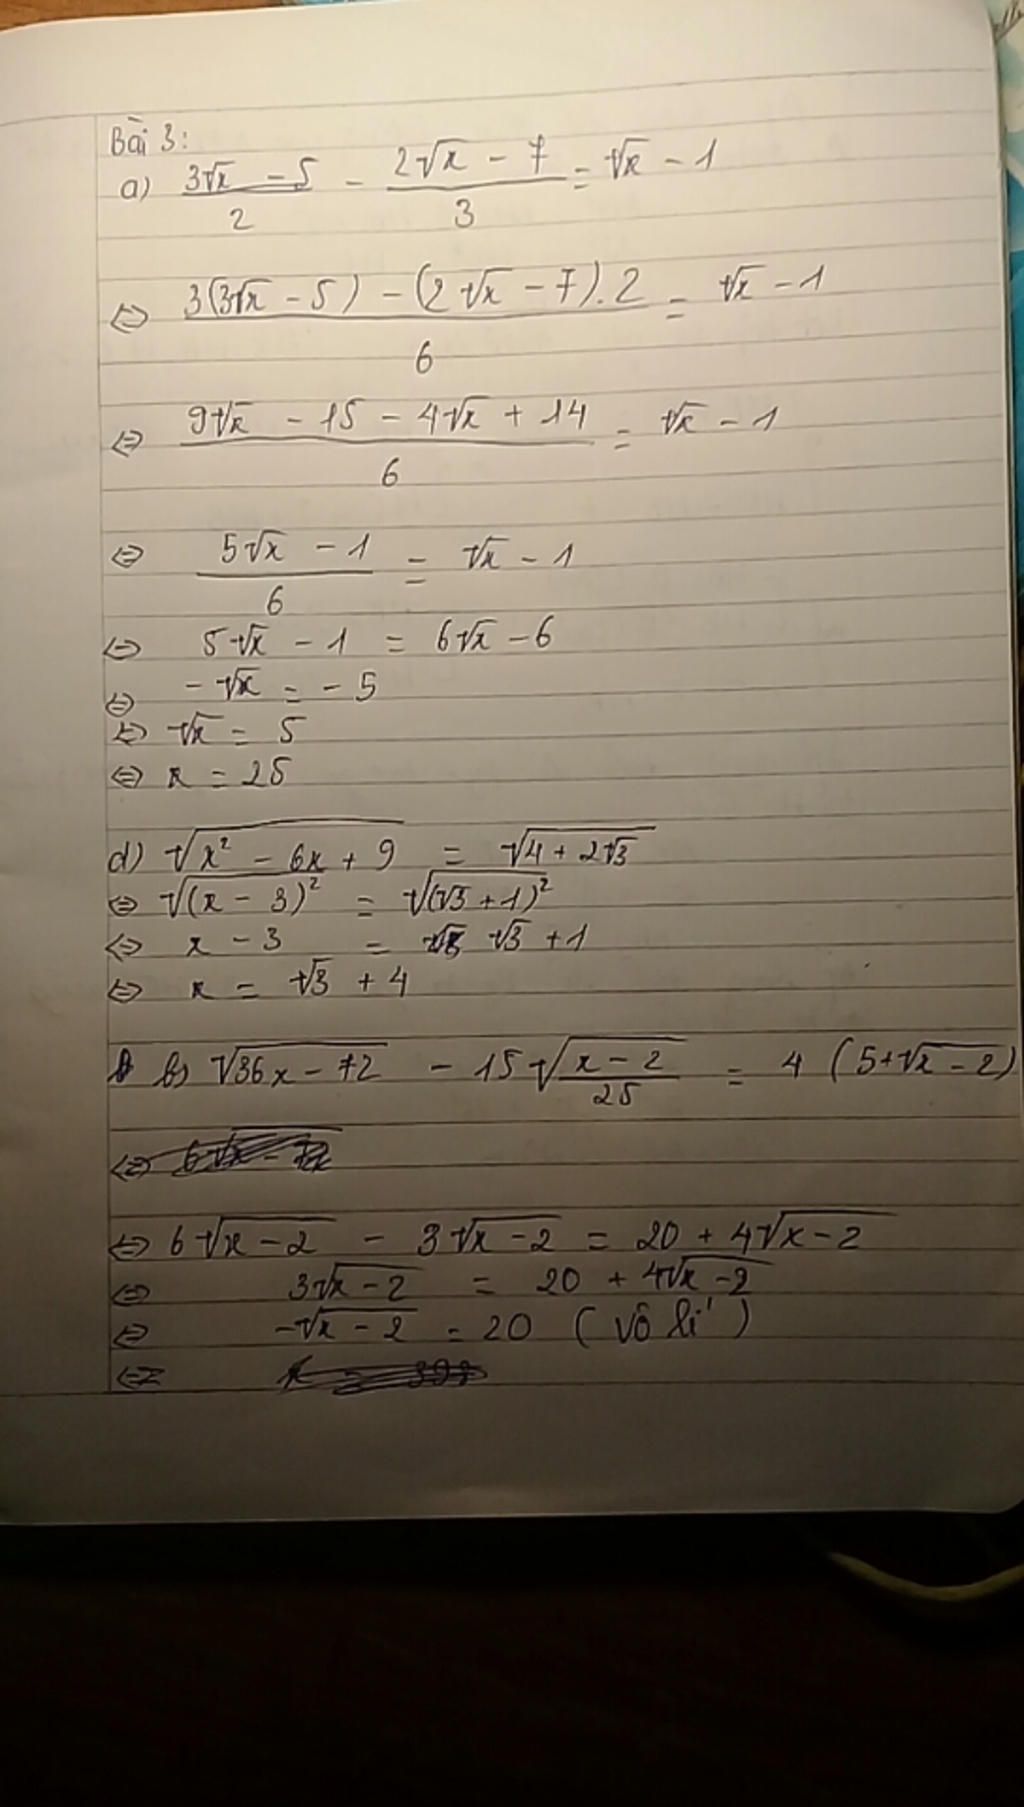 Bài 3:
a) (3√x - 5)/2 - (2√x - 7)/3 = √x - 1
⇔ (3(3√x - 5) - (2√x - 7).2)/6 = √x - 1
⇔ (9√x - 15 - 4√x + 14)/6 = √x - 1
⇔ (5√x - 1)/6 = √x - 1
⇔ 5√x - 1 = 6√x - 6
⇔ -√x = -5
⇔ √x = 5
⇔ x = 25
d) √(x² - 6x + 9) = √(4 + 2√3)
⇔ √((x - 3)²) = √((√3 + 1)²)
⇔ x - 3 = √3 + 1
⇔ x = √3 + 4
b) √(36x - 72) - 15√((x - 2)/25) = 4 (5 + √(x - 2))
⇔ 6√(x - 2) - 3√(x - 2) = 20 + 4√(x - 2)
⇔ 3√(x - 2) = 20 + 4√(x - 2)
⇔ -√(x - 2) = 20 (vô lí)
⇔